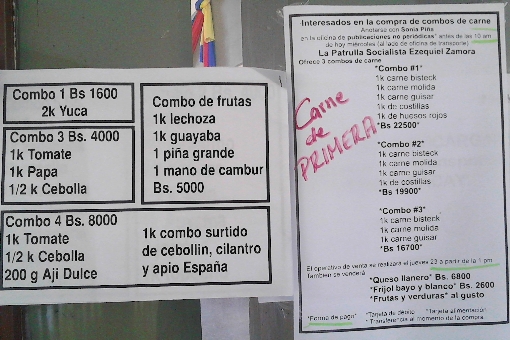 Combo 1 Bs 1600
2k Yuca
Combo 3 Bs. 4000
1k Tomate
1k Papa
1/2 k Cebolla
Combo de frutas
1k lechoza
1k guayaba
1 piña grande
1 mano de cambur
Bs. 5000
Combo 4 Bs. 8000
1k Tomate
1/2 k Cebolla
200 g Aji Dulce
1k combo surtido
de cebollin, cilantro
y apio España
Interesados en la compra de combos de carne
Anotarse con Sonia Piña
en la oficina de publicaciones no periódicas* antes de las 10 am
de hoy miércoles (al lado de oficina de transporte)
La Patrulla Socialista Ezequiel Zamora
Ofrece 3 combos de carne
*Combo #1*
1k carne bisteck
1k carne molida
1k carne guisar
1k de costillas
1k de huesos rojos
*Bs 22500*
*Combo #2*
1k carne bisteck
1k carne molida
1k carne guisar
1k de costillas
*Bs 19900*
*Combo #3*
1k carne bisteck
1k carne molida
1k carne guisar
*Bs 16700*
Carne
de
PRIMERA
El operativo de venta se realizará el jueves 23 a partir de la 1 pm
También se venderá
*Queso llanero* Bs. 6800
*Frijol bayo y blanco* Bs. 2600
*Frutas y verduras* al gusto
*Forma de pago* *Tarjeta de débito *Tarjeta alimentación
* Transferencia al momento de la compra